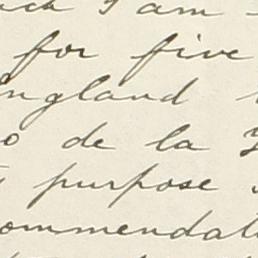 I am
for five
ngland
de la
purpose
ommendat